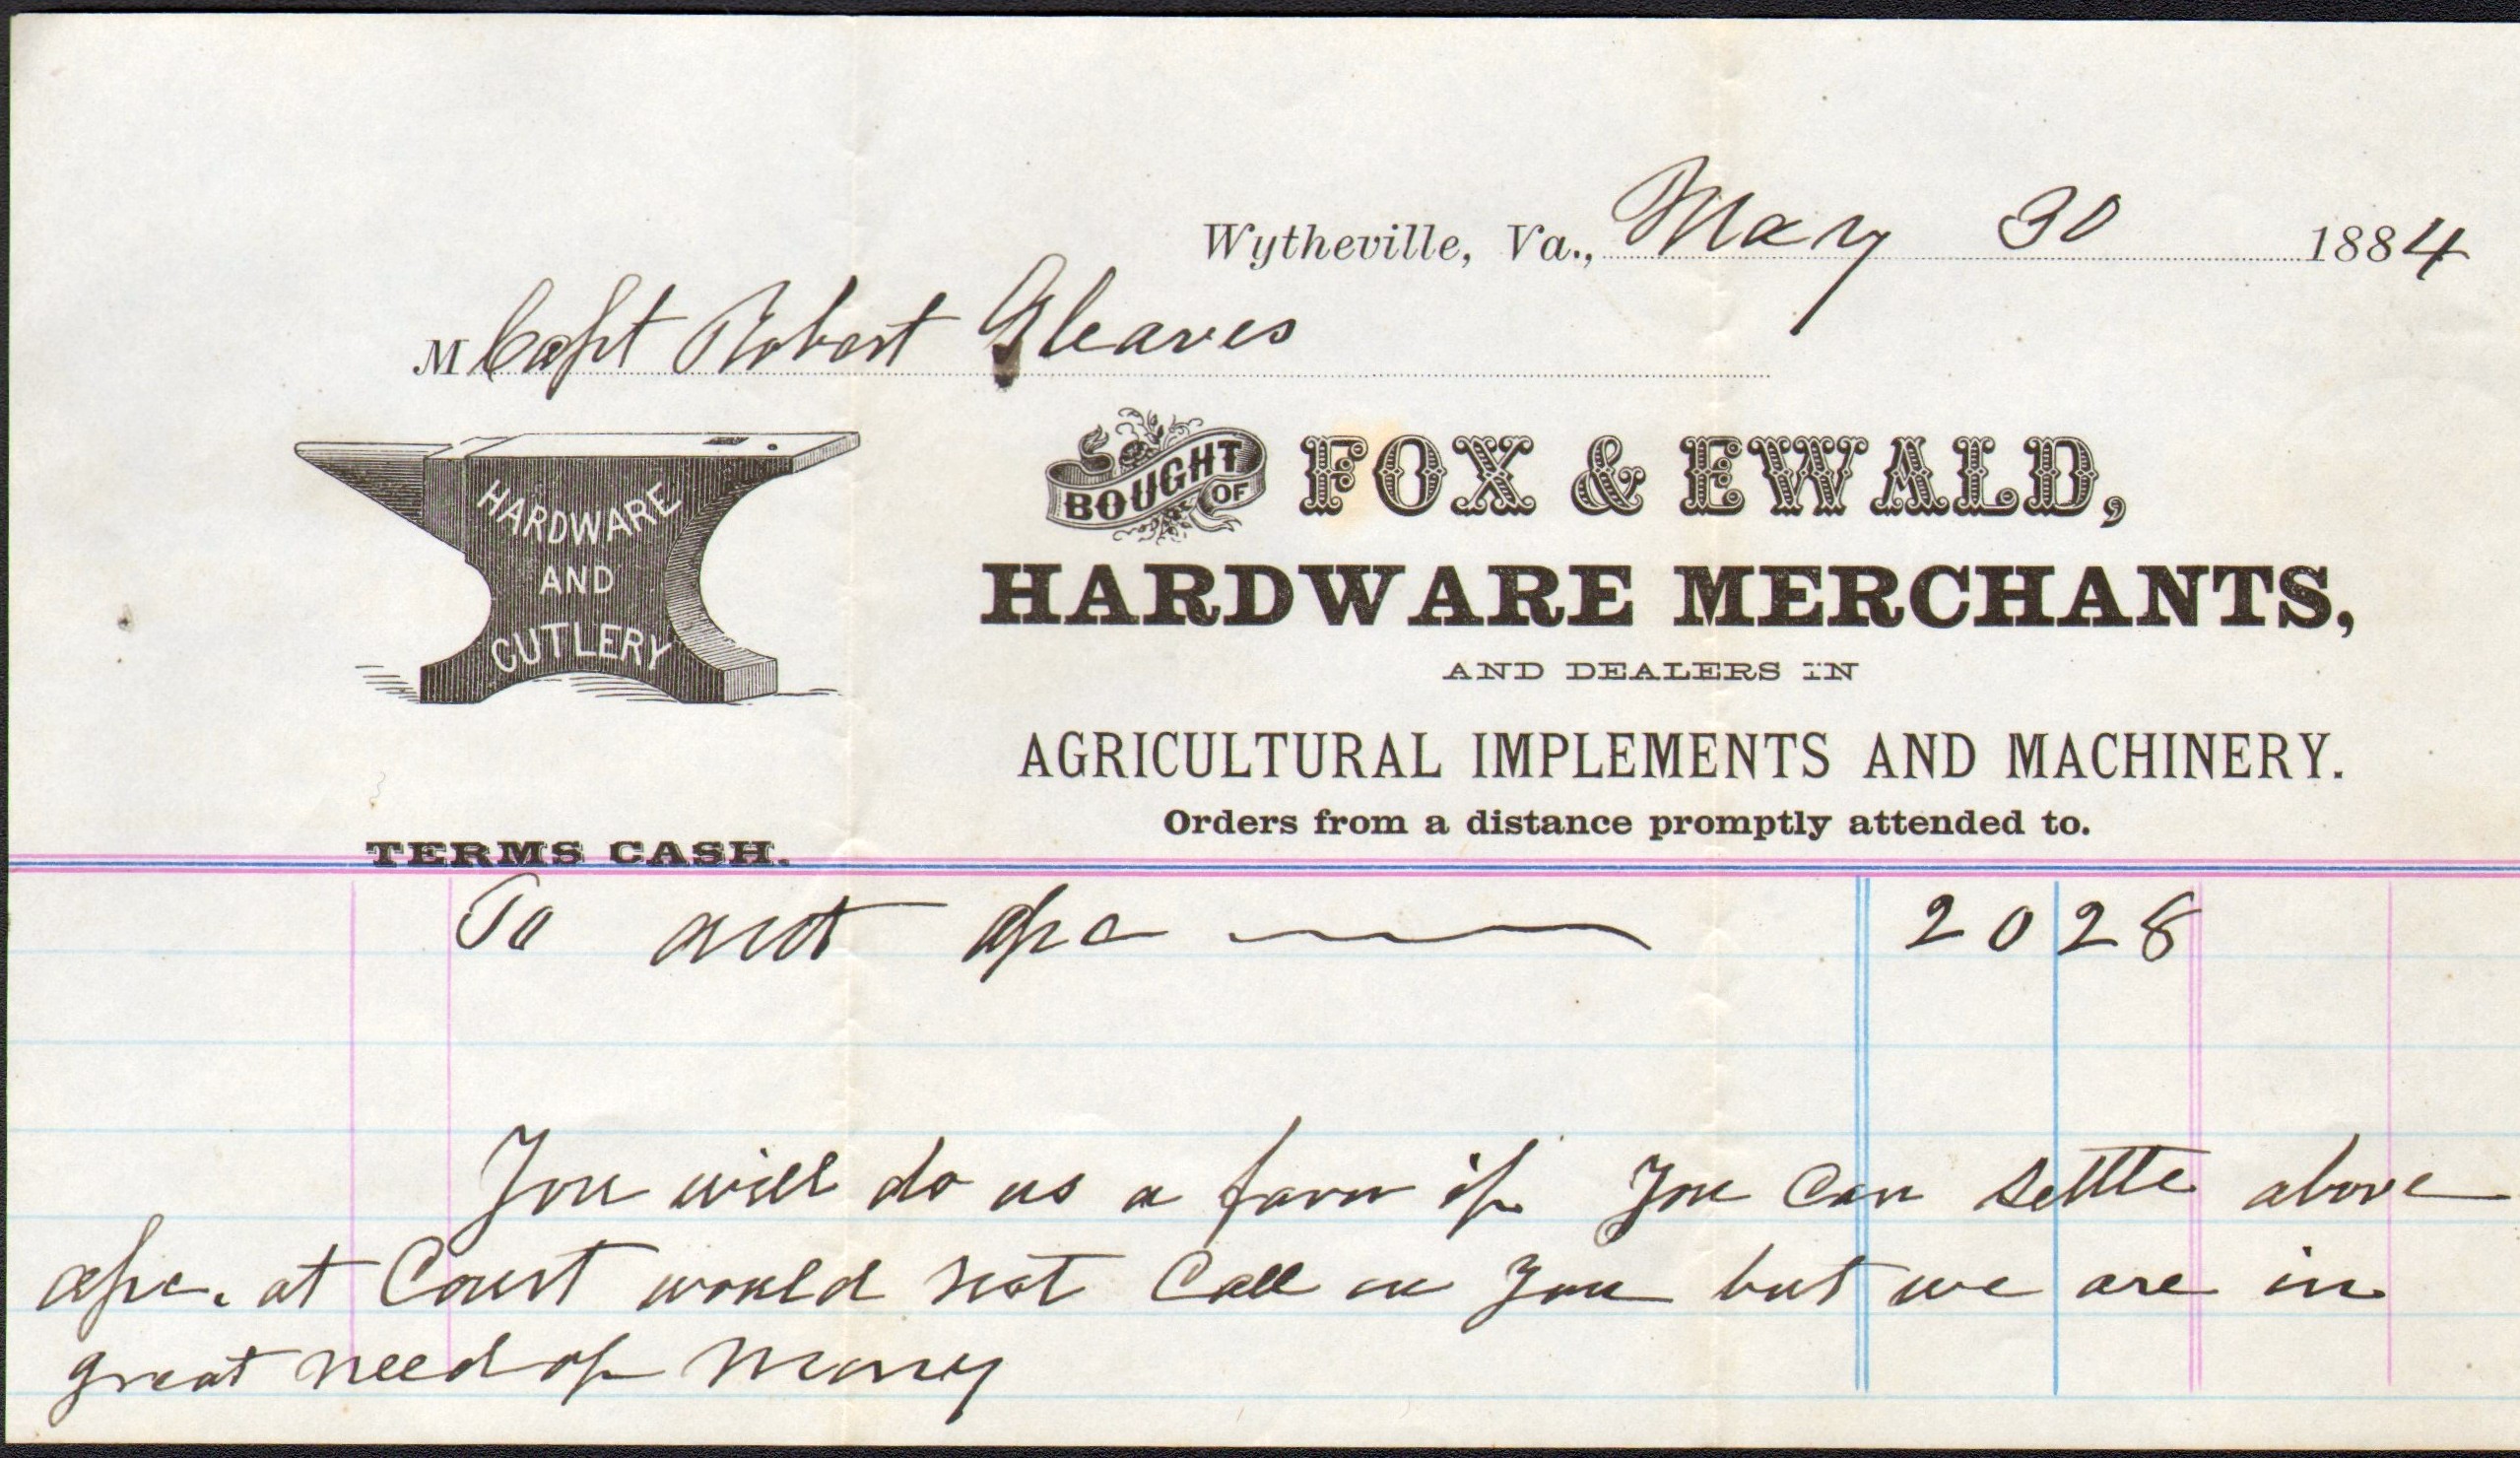 Wytheville, Va., May 30 1884
M Capt Robert Gleaves
HARDWARE
AND
CUTLERY
BOUGHT OF FOX & EWALD,
HARDWARE MERCHANTS,
AND DEALERS IN
AGRICULTURAL IMPLEMENTS AND MACHINERY.
Orders from a distance promptly attended to.
TERMS CASH.
To acct 20 28
You will do us a favor if You Can settle above
at Court would not Call on You but we are in
great need of Money